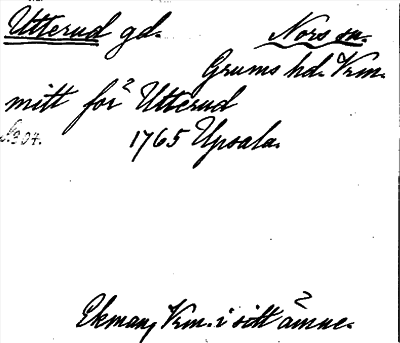 Utterud gd. Nors sn.
Grums hd. Vrm.
mitt för Utterud
1765 Upsala.
Ekman, Vrm. i sitt ämne.